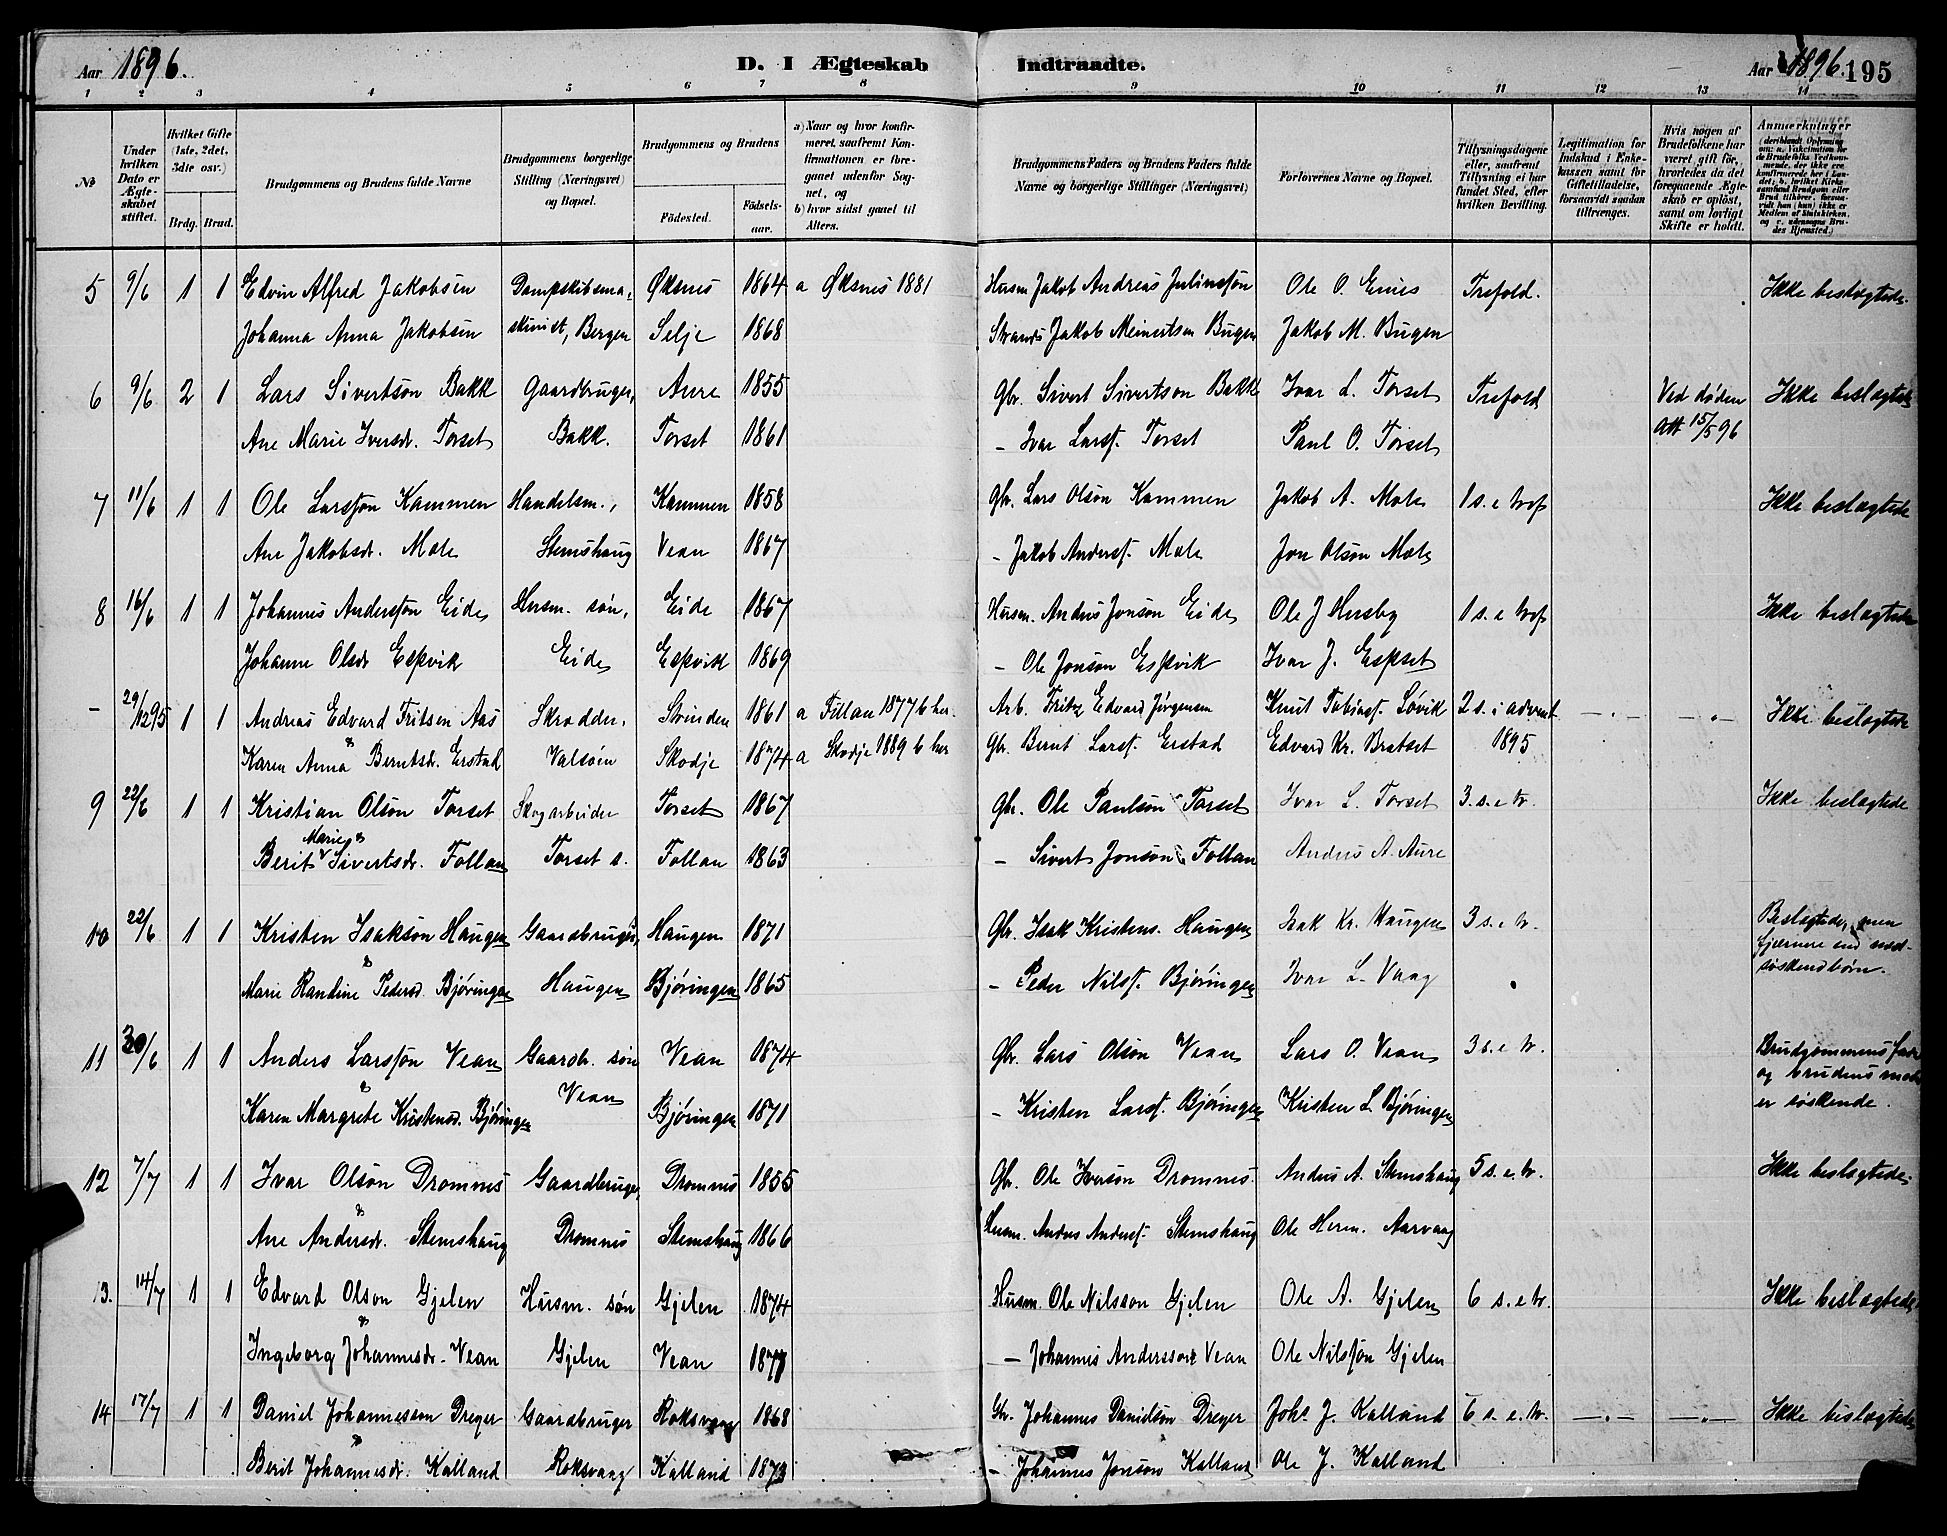 Aar 1896. D. I Ægteskab Indtraadte. Aar 1896. 195
1 2 3 4 5 6 7 8 9 10 11 12 13 14
No
Under hvilken Dato er Ægteskabet stiftet.
Hvilket Gifte (1ste, 2det, 3die osv.)
Brdg. Brud.
Brudgommens og Brudens fulde Navne
Brudgommens borgerlige Stilling (Næringsvei) og Bopæl.
Brudgommens og Brudens
Fødested. Fødselsaar.
a) Naar og hvor konfirmeret, saafremt Konfirmationen er foregaaet udenfor Sognet, og
b) hvor sidst gaaet til Alters.
Brudgommens Faders og Brudens Faders fulde Navne og borgerlige Stillinger (Næringsvei)
Forlovernes Navne og Bopæl.
Tillysningsdagene eller, saafremt Tillysning ei har fundet Sted, efter hvilken Bevilling.
Legitimation for Indskud i Enkekassen samt for Giftetilladelse, forsaavidt saadan tiltrænges.
Hvis nogen af Brudefolkene har været gift før, hvorledes da det foregaaende Ægteskab er opløst, samt om lovligt Skifte er holdt.
Anmærkninger (deriblandt Oplysning om: a. Vakcination for de Brudefolks Vedkommende, der ikke ere konfirmerede her i Landet; b. hvilket Kirkesamfund Brudgom eller Brud tilhører, forsaavidt han (hun) ikke er Medlem af Statskirken, og c. udensogns Brudes Hjemsted.)
5 9/6 1 1 Edvin Alfred Jakobsen Dampskibsma- Øksnes 1864 a Øksnes 1881 Husm Jakob Andreas Juliussøn Ole O. Trefold. Ikke beslægtede.
Johanna Anna Jakobsen skinist, Bergen Selje 1868 Strands. Jakob Meinertsen Bugen Jakob M. Bugen
6 9/6 2 1 Lars Sivertsøn Bakk Gaardbruger, Aure 1855 Gbr. Sivert Sivertson Bakk Ivar L. Torset Trefold Ved døden Ikke beslægtede
Ane Marie Iversdr. Torset Bakk. Torset 1861 - Ivar Larsf. Torset Paul O. Torset Att 15/5 96
7 11/6 1 1 Ole Larssøn Kammen Handelsm., Kammen 1858 Gbr. Lars Olsøn Kammen Jakob A. Mele 1 s. e trof Ikke beslægtede
Ane Jakobsdr. Mele Stemshaug Vean 1867 - Jakob Andersf. Mele Jon Olsøn Mele
8 16/6 1 1 Johannes Anderssøn Eide Husm. søn, Eide 1867 Husm. Anders Jonsøn Eide Ole J Husby 1 s. e trof Ikke beslægtede
Johanne Olsdr Espvik Eide Espvik 1869 - Ole Jonsøn Espvik Ivar J. Espset
- 29/12 95 1 1 Andreas Edvard Fritsen Aas Skrædder. Strinden 1861 a Fillan 1877 b her. Arb. Fritz Edvard Jørgensen Knut Tobiasf. Løvik 2 s. i advent Ikke beslægtede
Karen Anna Berntsdr. Erstad Valsøin Skodje 1874 a Skodje 1889 b her Gbr. Bernt Larsf. Erstad Edvard Kr. Bratset 1895
9 22/6 1 1 Kristian Olsøn Torset Skogarbeider Torset 1867 Gbr. Ole Paulsøn Torset Ivar L. Torset 3. s. e tr. Ikke beslægtede
Berit Marie Sivertsdr. Follan Torset s. Follan 1863 - Sivert Jonsøn Follan Anders A. Aure
10 22/6 1 1 Kristen Isaksøn Haugen Gaardbruger, Haugen 1871 Gbr. Isak Kristens. Haugen Isak Kr. Haugen 3 s. e tr. Beslægtede, men
fjernere end næst-
Marie Randine Pedersd. Bjøringen Haugen Bjøringen 1865 - Peder Nilsf. Bjøringen Ivar L. Vaag søskendbørn.
11 30/6 1 1 Anders Larssøn Vean Gaardb. søn Vean 1874 Gbr. Lars Olsøn Vean Lars O. Vean 3 s. e tr. Brudgommens far
og brudens mor
Karen Margrete Kristensd. Bjøringen Vean Bjøringen 1871 - Kristen Larsf. Bjøringen Kristen L Bjøringen er søskende.
12 7/7 1 1 Ivar Olsøn Dromnes Gaardbruger, Dromnes 1855 Gbr. Ole Iversøn Dromnes. Anders A. Stemshaug 5 s. e. tr. Ikke beslægtede.
Ane Andersdr. Stemshaug Dromnes Stemshaug 1866 Husm. Anders Andersf. Stemshaug Ole Herm. Aarvaag
13. 14/7 1 1 Edvard Olson Gjelen Husm. søn Gjelen 1874 Husm. Ole Nilsson Gjelen Ole A. Gjelen 6 s. e tr. Ikke beslægtede
Ingeborg Johannesdr. Vean Gjelen Vean 1877 - Johannes Andersson Vean Ole Nilssøn Gjelen
14 17/7 1 1 Daniel Johannesson Dreyer Gaardbruger Roksvaag 1868 Gbr. Johannes Danielsøn Dreyer Johs J. Kalland 6 s. e. tr. Ikke beslægtede
Berit Johannesdr. Kalland Roksvaag Kalland 1873 - Johannes Jonson Kalland Ole J. Kalland